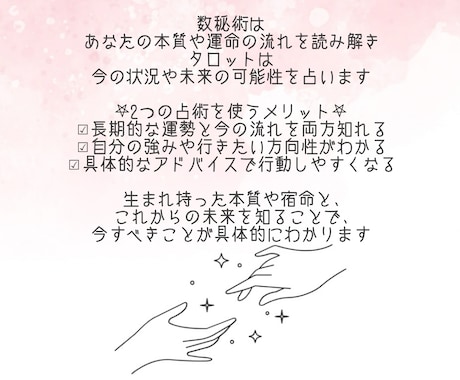 数秘術は
あなたの本質や運命の流れを読み解き
タロットは
今の状況や未来の可能性を占います
⛧2つの占術を使うメリット⛧
☑長期的な運勢と今の流れを両方知れる
☑自分の強みや行きたい方向性がわかる
☑具体的なアドバイスで行動しやすくなる
生まれ持った本質や宿命と、
これからの未来を知ることで、
今すべきことが具体的にわかります